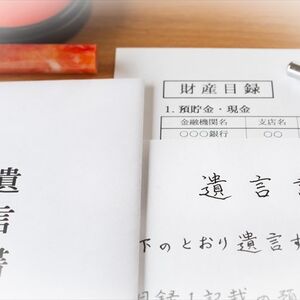 財産目録
1. 預貯金・現金
金融機関名 支店名
○○○銀行 ○○
遺言書
遺言
下のとおり遺言す
目録1記載の預